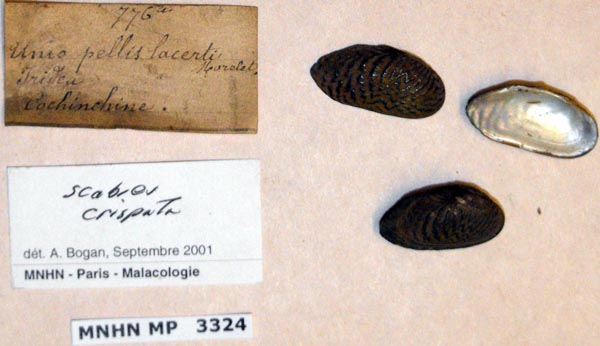 776
Unio pellis lacerti
Morelet
Cochinchine.
scabies
crispata
dét. A. Bogan, Septembre 2001
MNHN - Paris - Malacologie
MNHN MP 3324